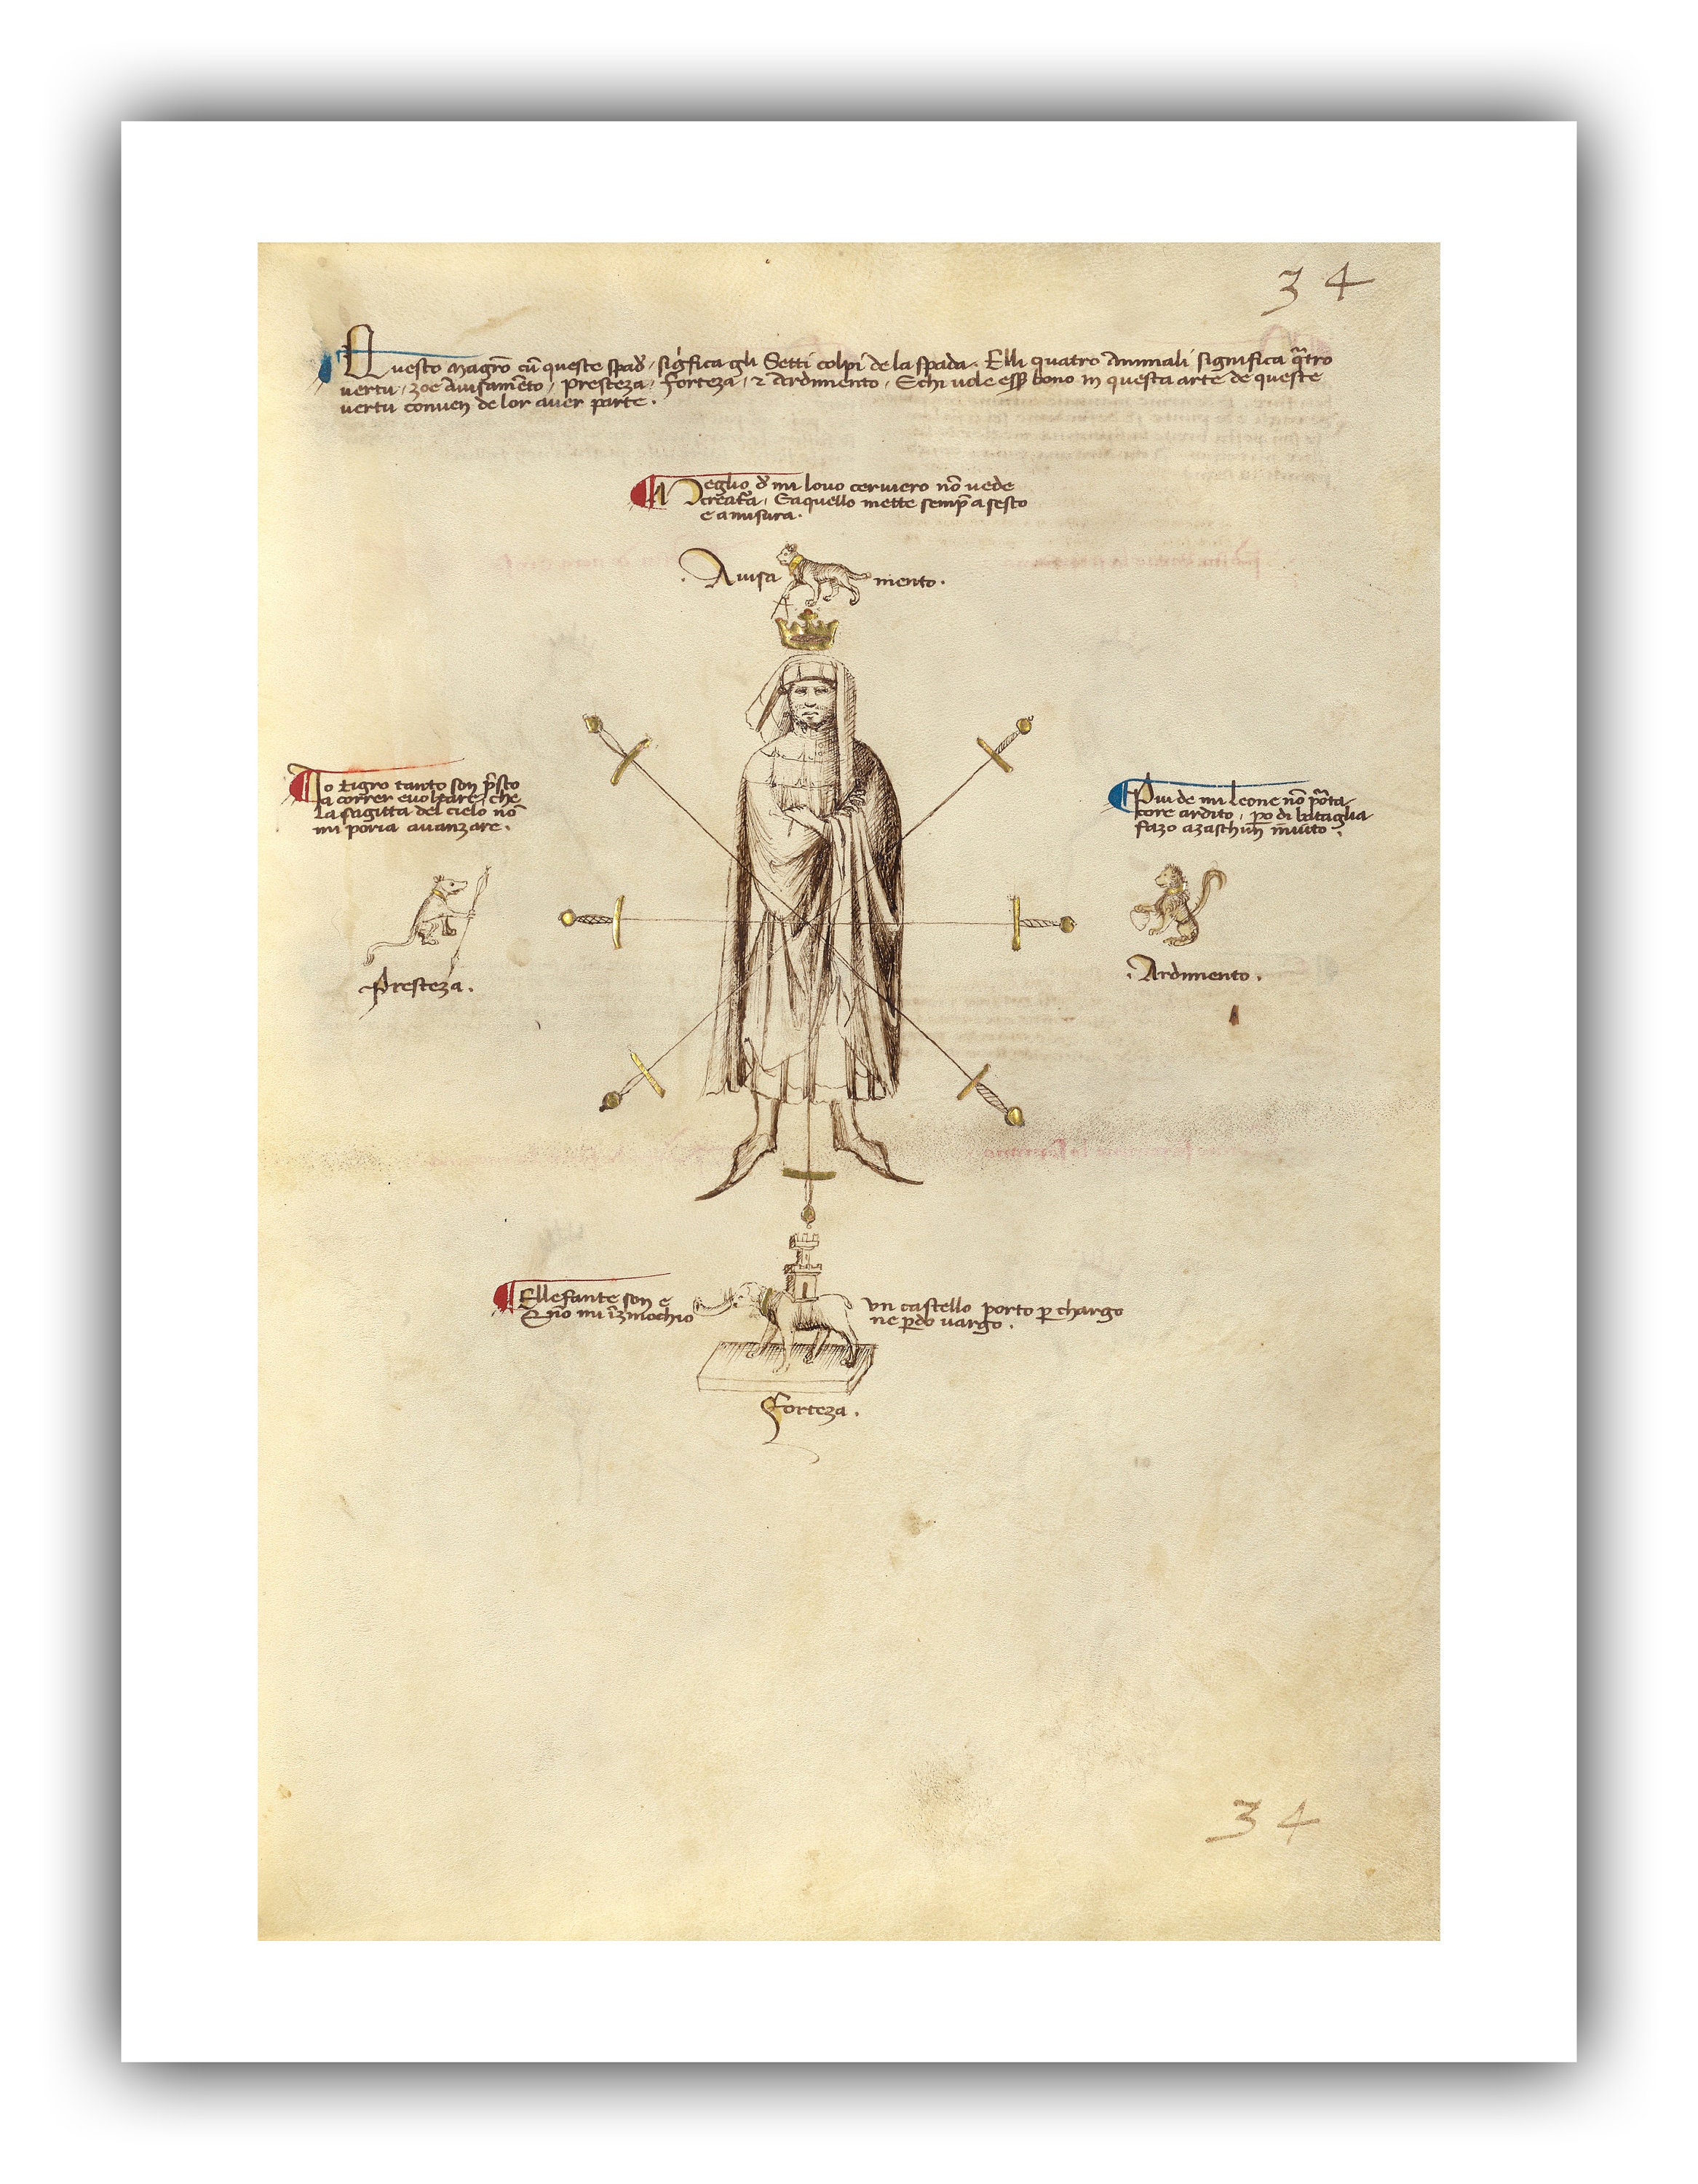 34
Questo Magrō cū queste spad̄. sig̍fica gli Setti colpi de la spada. Elli quatro Animali significa q̄tro
vertu, zoe Avisamēto, presteza, forteza, ⁊ Ardimento. E chi vole ess̄ bono in questa arte de queste
vertu conven de lor aver parte.
Meglio d̄ mi lovo cerviero nō vede
creat̄a, E aquello mette semp̄ a sesto
e a misura.
Avisa mento.
Io tigro tanto son p̄sto
a correr e voltare, che
la sagitta del cielo nō
mi poria avanzare.
Più de mi Leone nō pōrta
core ardito, po di bataglia
fazo a zaschuñ invito.
Presteza.
Ardimento.
Ellefante son e un castello porto p chargo
E nō mi īzinochio ne pdo vargo.
Forteza.
34